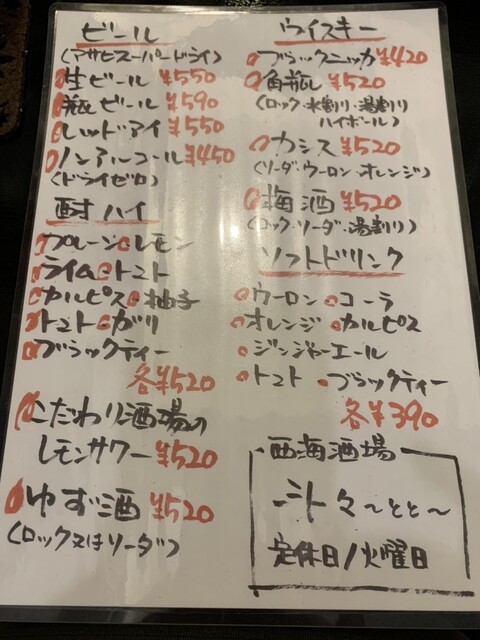 ビール
(アサヒスーパードライ)
生ビール ¥550
瓶ビール ¥590
レッドアイ ¥550
ノンアルコール ¥450
(ドライゼロ)
酎ハイ
プレーン レモン
ライム トマト
カルピス 柚子
トマト ガリ
ブラックティー
各¥520
こだわり酒場の
レモンサワー ¥520
ゆず酒 ¥520
(ロック又はソーダ)
ウイスキー
ブラックニッカ ¥420
角瓶 ¥520
(ロック・水割り・湯割り
ハイボール)
カシス ¥520
(ソーダ・ウーロン・オレンジ)
梅酒 ¥520
(ロック・ソーダ・湯割り)
ソフトドリンク
ウーロン コーラ
オレンジ カルピス
ジンジャーエール
トマト ブラックティー
各¥390
西海酒場
々〜とと〜
定休日/火曜日